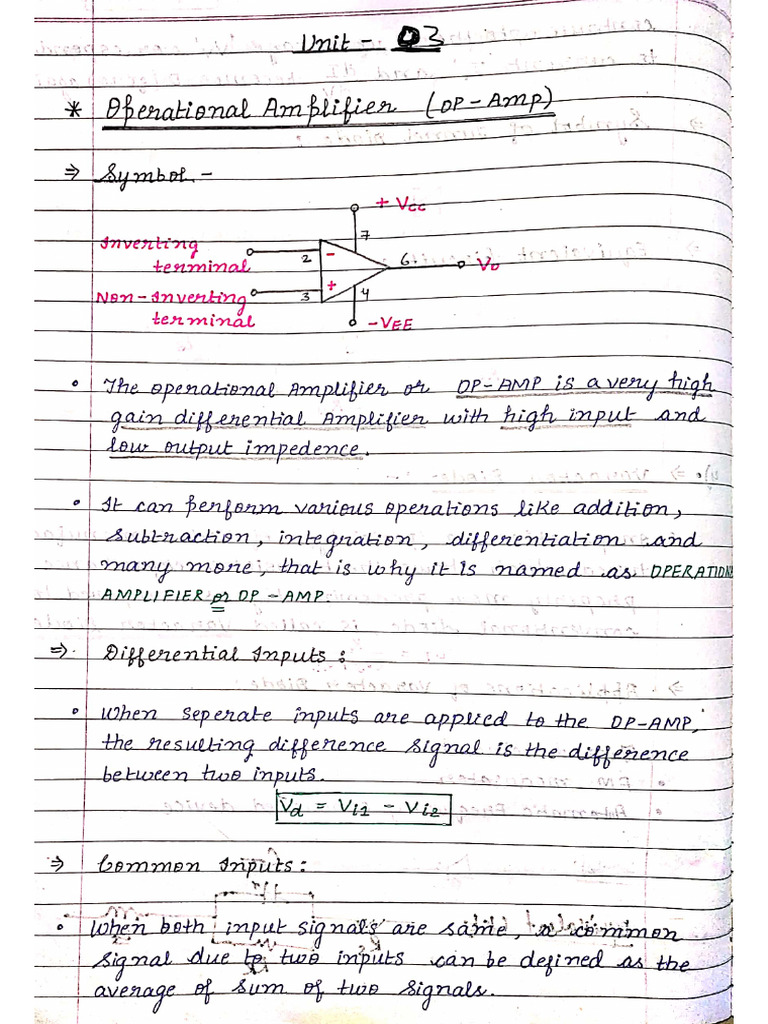 Unit - 03
* Operational Amplifier (OP-Amp)
⇒ Symbol -
+ Vcc
7
Inverting
terminal
2
-
6
Vo
Non-Inverting
terminal
3
+
4
-VEE
• The operational Amplifier or OP-AMP is a very high
gain differential Amplifier with high input and
low output impedence.
• It can perform various operations like addition,
subtraction, integration, differentiation and
many more, that is why it is named as OPERATION
AMPLIFIER or OP-AMP.
⇒ Differential Inputs :
• When seperate inputs are applied to the OP-AMP,
the resulting difference signal is the difference
between two inputs.
Vd = Vi1 - Vi2
⇒ Common Inputs :
• When both input signals are same, a common
signal due to two inputs can be defined as the
average of sum of two signals.